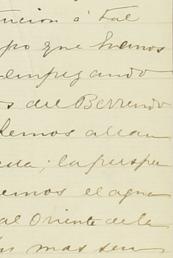 á Tal
po que hemos
empezando
s del Berrendo
demos alcan
la perspe
emos el agua
al Oriente de la
mas sen